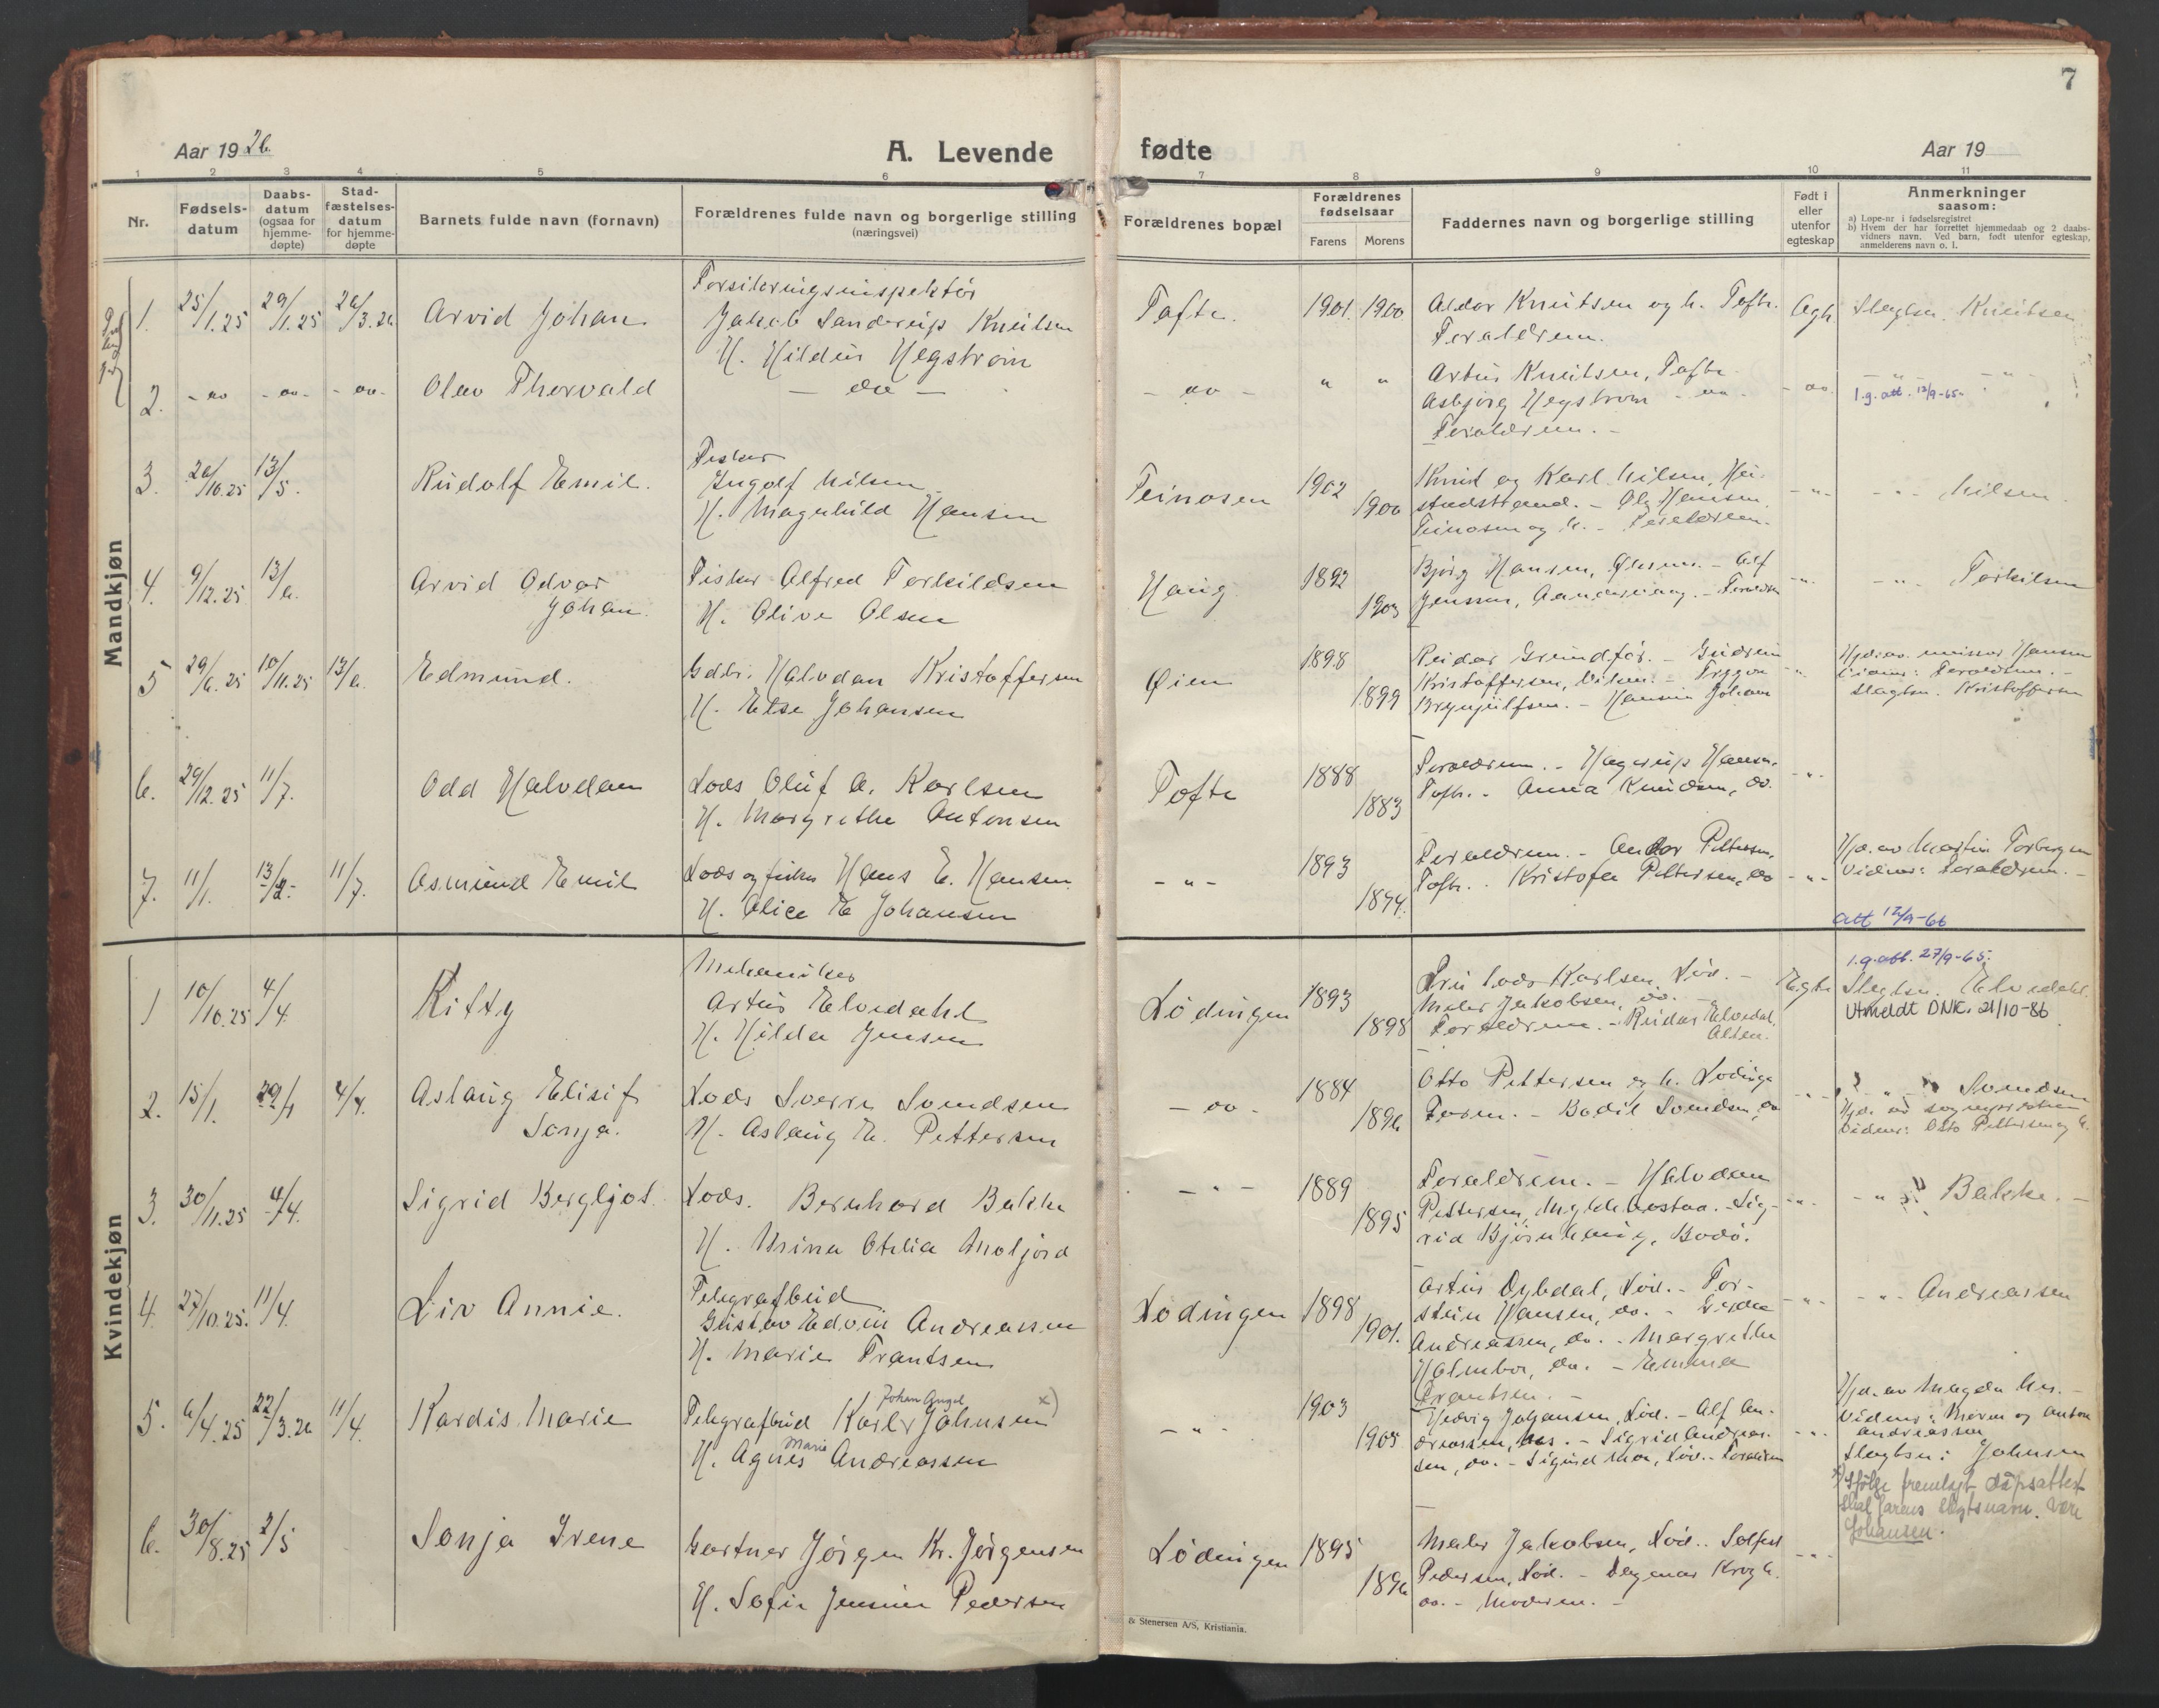 7
Aar 1926.
A. Levende
fødte
Aar 19
1 2 3 4 5 6 7 8 9 10 11
Nr.
Fødsels-
datum
Daabs-
datum
(ogsaa for
hjemme-
døpte)
Stad-
fæstelses-
datum
for hjemme-
døpte
Barnets fulde navn (fornavn)
Forældrenes fulde navn og borgerlige stilling
(næringsvei)
Forældrenes bopæl
Forældrenes
fødselsaar
Farens Morens
Faddernes navn og borgerlige stilling
Født i
eller
utenfor
egteskap
Anmerkninger
saasom:
a) Løpe-nr i fødselsregistret
b) Hvem der har forrettet hjemmedaab og 2 daabs-
vidners navn. Ved barn, født utenfor egteskap,
anmelderens navn o. l.
Mandkjøn
1. 25/1.25 29/1.25 26/3.26 Arvid Johan
Jakob Sanderup Knutsen
H. Hildur Hegstrøm
Tofte. 1901. 1900
Aldor Knutsen og h. Tofte.
Foraldrene.
Egte. Slegtsn. Knutsen
2. - do - do - - do - Olav Thorvald - do -
- do - " "
Artur Knutsen, Tofte
Asbjørg Hegstrøm - do -
Foraldrene. -
- do. - " - - " -
1.g. att. 13/9-65-
3. 26/10.25 13/5. Rudolf Emil.
Fisker
Ingolf Nilsen
H. Magnhild Hansen
Teinosen 1902 1900
Knut og Karl Nilsen, Hei-
stadstrand. - Ole Hansen
Teinosen og h. - Foraldrene.
- " - - " - Nilsen
4. 9/12.25 13/6. Arvid Odvar
Johan.
Fisker Alfred Torkildsen
H. Olive Olsen
Haug 1892 1903
Bjørg Hansen, - Alf
Jenssen, - Foraldrene
- " - Torkilsen
5 29/6.25 10/11.25 13/6. Edmund.
Gdbr. Halvdan Kristoffersen
H. Else Johansen
Øien 1898 1899
Reidar Grundfør. - Gudrun
Kristoffersen, - Trygve
Brynjulfsen. - Johan
Hjd. av Hansen
Foraldrene. -
Slegtsn. Kristoffersen
6. 29/12.25 11/7. Odd Halvdan
Lods Oluf A. Karlsen
H. Margrethe Antonsen
Tofte 1888 1883
Foraldrene. - Hagerup Hansen,
Tofte. - Anna Knudsen, do.
- " -
7. 11/1. 13/2- 11/7. Asmund Emil
Lods og fisker Hans E. Hansen
H. Alice E Johansen
- " - 1893 1894.
Foraldrene. - Andor Pettersen,
Tofte. - Kristofa Pettersen, do
- " -
Hjd. av Martin Torbergsen
Vidner: Foraldrene. -
att 12/9-66
Kvindekjøn
1 10/10.25 4/4. Kitty
Mekaniker
Artur Elvedahl
H. Hilda Jensen
Lødingen 1893 1898
Fru Lods Karlsen, Lød. -
Maler Jakobsen, do. -
Foraldrene. - Reidar Elvedal,
Alten.
Egte
1.g. att. 27/9-65.
Slegtsn. Elvedahl.
Utmeldt DNK. 21/10-86
2. 15/1. 29/1 4/4. Aslaug Elisif
Sonja.
Lods Sverre Svendsen
H. Aslaug E. Pettersen
- do - 1884 1896
Otto Pettersen og h. Lødingen
Forn. - Bodil Svendsen, do
- " - Svendsen
Hjd. av sogneprsten
Vidner: Otto Pettersen og h.
3. 30/11.25 4/4. Sigrid Bergljot.
Lods. Bernhard Bakke
H. Otelia Moljord
- " - 1889 1895
Foraldrene. - Halvdan
Pettersen, Myklebostad. - Sig-
rid Bjørnhaug, Bodø.
- " - - " - Bakke. -
4. 27/10.25. 11/4. Liv Annie.
Telegrafbud
Gustav Edvin Andreassen
H. Marie Frantsen
Lødingen 1898 1901.
Artur Dybdal, Lød. - Tor-
stein Hansen, do. -
Andreassen, do. - Margrethe
Halmbo, do. - Emma
Frantsen. -
- " - - " - Andreassen
5. 6/4.25 22/3.26 11/4. Kardis Marie
Johan Angel
Telegrafbud Karl Johnsen x)
Marie
H. Agnes Andreassen
- " - 1903 1905
Hedvig Johansen, Lød. - Alf An-
dreassen, - Sigrid Andreas-
sen, do. - Sigurd Moe, Lød. - Foraldrene
- " -
Hjd. av Magda
Vidner: Moren og Anton
Andreassen
Slegtsn: Johnsen
x) Ifølge fremlagt dåpsattest
skal farens slegtsnavn være
Johansen.
6. 30/8.25 2/5 Sonja Irene
Gartner Jørgen Kr. Jørgensen
H. Sofie Jensine Pedersen
Lødingen 1895 1896
Maler Jakobsen, Lød. - Solfest
Pedersen, Lød. - Dagmar Krogh.
do. - Moderen. -
- " -
& Stenersen A/S, Kristiania.